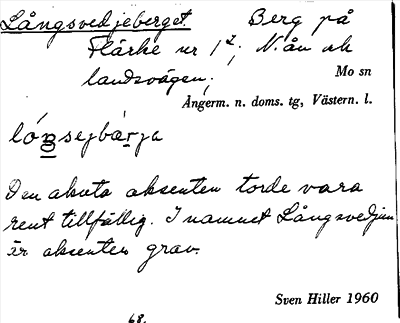 Långsvedjeberget Berg på
Flärke nr 1²; N. ån ok
landsvägen;
Mo sn
Ångerm. n. doms. tg, Västern. l.
Den akuta aksenten torde vara
rent tillfällig. I namnet Långsvedjan
är aksenten grav.
Sven Hiller 1960
68.